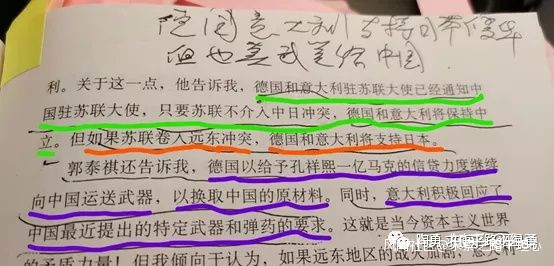 德国意大利支持日本侵华
但也卖武器给中国
利。关于这一点，他告诉我，德国和意大利驻苏联大使已经通知中
国驻苏联大使，只要苏联不介入中日冲突，德国和意大利将保持中
立。但如果苏联卷入远东冲突，德国和意大利将支持日本。
郭泰祺还告诉我，德国以给予孔祥熙一亿马克的信贷力度继续
向中国运送武器，以换取中国的原材料。同时，意大利积极回应了
中国最近提出的特定武器和弹药的要求。这就是当今资本主义世界
的矛盾力量！但我倾向于认为，如果远东地区的